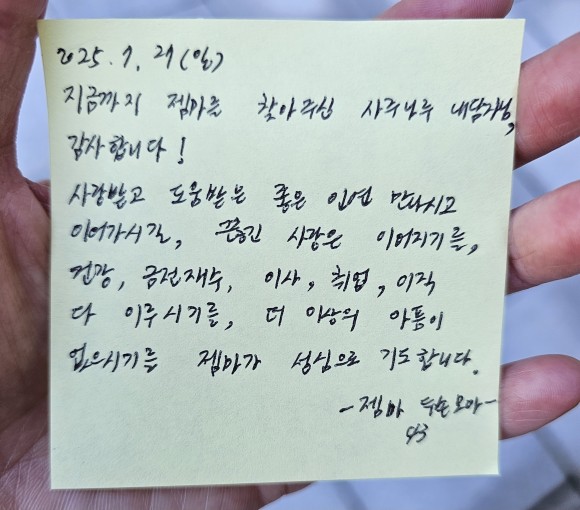 2025. 7. 27 (일)
지금까지 젬마를 찾아주신 사주나루 내담자님,
감사합니다!
사랑받고 도움받는 좋은 인연 만나시고
이어가시길, 끊긴 사랑은 이어지기를,
건강, 금전재수, 이사, 취업, 이직
다 이루시기를, 더 이상의 아픔이
없으시기를 젬마가 성심으로 기도합니다.
-젬마 두손모아-